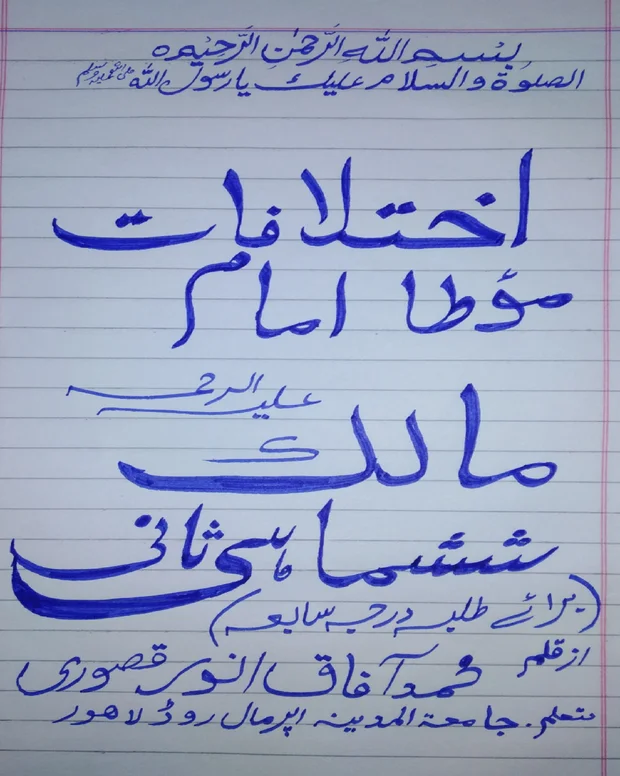 بسم اللہ الرحمٰن الرحیم
الصلوٰۃ والسلام علیک یارسول اللہ ﷺ
اختلافات
مؤطا امام
مالک علیہ الرحمہ
ششماہی ثانی
(برائے طلبہ درجہ سابعہ)
از قلم
محمد آفاق انور قصوری
متعلم. جامعۃ المدینہ اپر مال روڈ لاهور